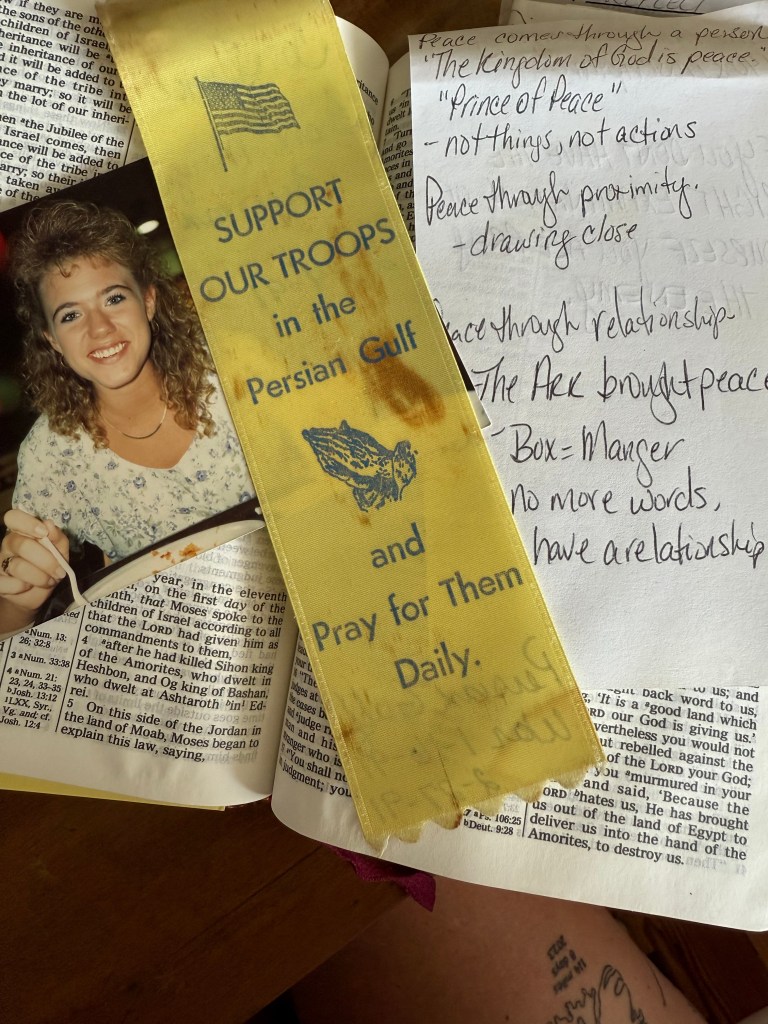 if they are m
the sons of the othe
children of Israel
heritance will be
inheritance of our
d it will be added to
ce of the tribe int
y marry; so it will be
n the lot of our inheri-
hen ᵃthe Jubilee of the
Israel comes, then
ance will be added to
ce of the tribe in
arry; so their
taken aw
of the
SUPPORT
OUR TROOPS
in the
Persian Gulf
and
Pray for Them
Daily.
Peace comes through a person
"The Kingdom of God is peace."
"Prince of Peace"
- not things, not actions
Peace through proximity.
- drawing close
Peace through relationship
The Ark brought peace
Box = Manger
no more words,
have a relationship
year, in the eleventh
th, on the first day of the
nth, that Moses spoke to the
children of Israel according to all
that the LORD had given him as
commandments to them,
4 ᵃafter he had killed Sihon king
of the Amorites, who dwelt in
Heshbon, and Og king of Bashan,
who dwelt at Ashtaroth ᵇin¹ Ed-
rei.
5 On this side of the Jordan in
the land of Moab, Moses began to
explain this law, saying,
ᵃNum. 13:
26; 32:8
3 ᵃNum. 33:38
4 ᵃNum. 21:
23, 24, 33–35
ᵇJosh. 13:12
¹LXX, Syr.,
Vg. and; cf.
Josh. 12:4
judge r
and his
anger who is
'You shall no
judgment; you
Persian Gulf
was
to us; and
ght back word to us,
'It is a ᵃgood land which
RD our God is giving us.'
vertheless you would not
ut rebelled against the
of the LORD your God;
you ᵃmurmured in your
and said, 'Because the
LORD ᵇhates us, He has brought
us out of the land of Egypt to
deliver us into the hand of the
Amorites, to destroy us.
7 ᵃPs. 106:25
ᵇDeut. 9:28